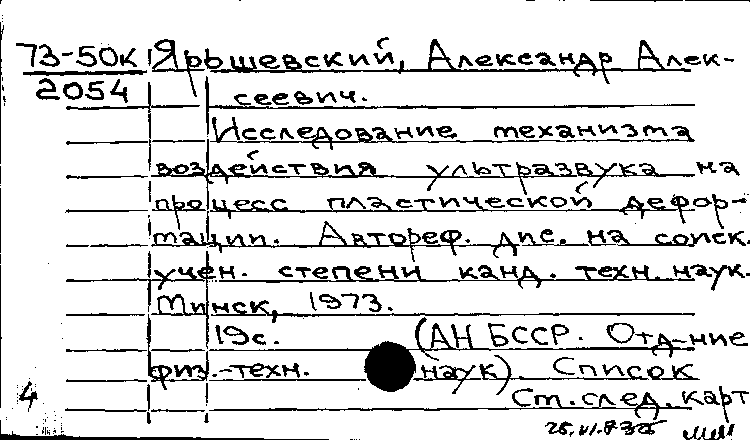 73-50к Ярышевский, Александр Алек-
2054 сеевич.
Исследование механизма
воздействия ультразвука на
процесс пластической дефор-
мации. Автореф. дис. на соиск.
учен. степени канд. техн. наук.
Минск, 1973.
19с. (АН БССР. Отд-ние
физ.-техн. наук). Список
4 См.след.карт